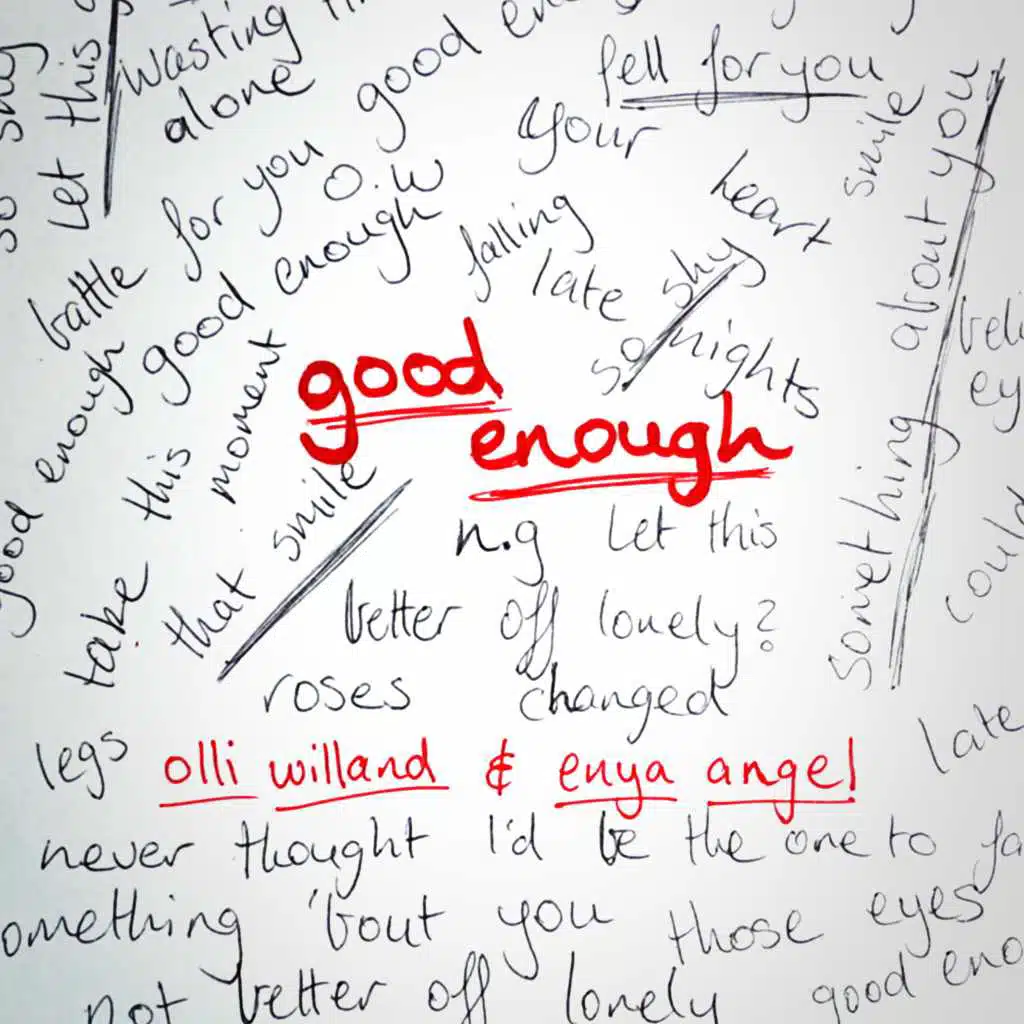 so shy
Let this
wasting
alone
for you good
fell for you
your
heart
smile
something about you
battle
good enough
O.W
falling
late nights
so shy
good enough
take this
moment
that smile
good
enough
n.g Let this
better off lonely?
roses changed
could
legs
late
olli willand & enya angel
never thought I'd be the one to
omething 'bout you those eyes
not better off lonely good eno